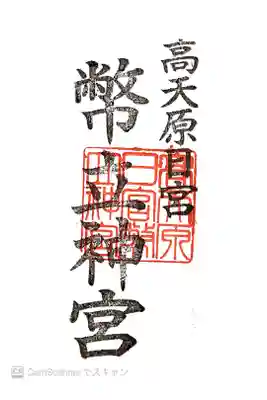 高天原日宮
幣立神宮
CamScanner でスキャン